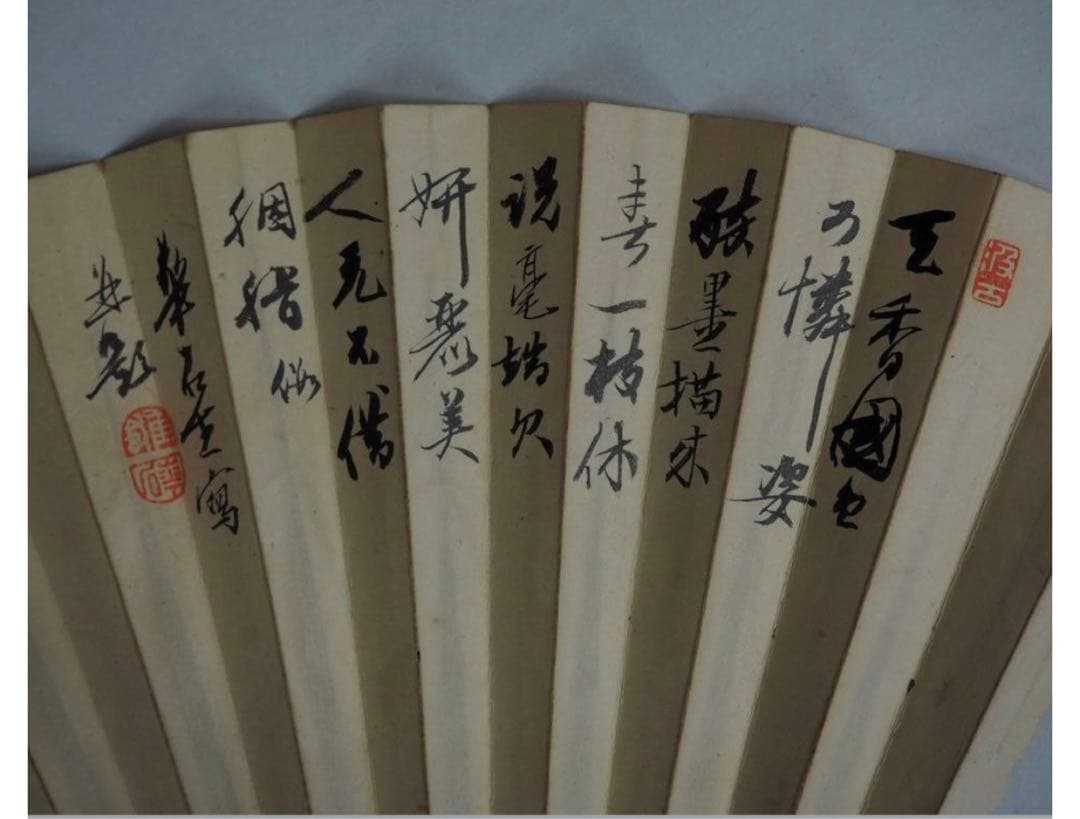 汲古
天香國色
可憐姿
醉墨描來
春一枝休
說毫端欠
妍麗美
人元不借
胭脂
石生寫
并題